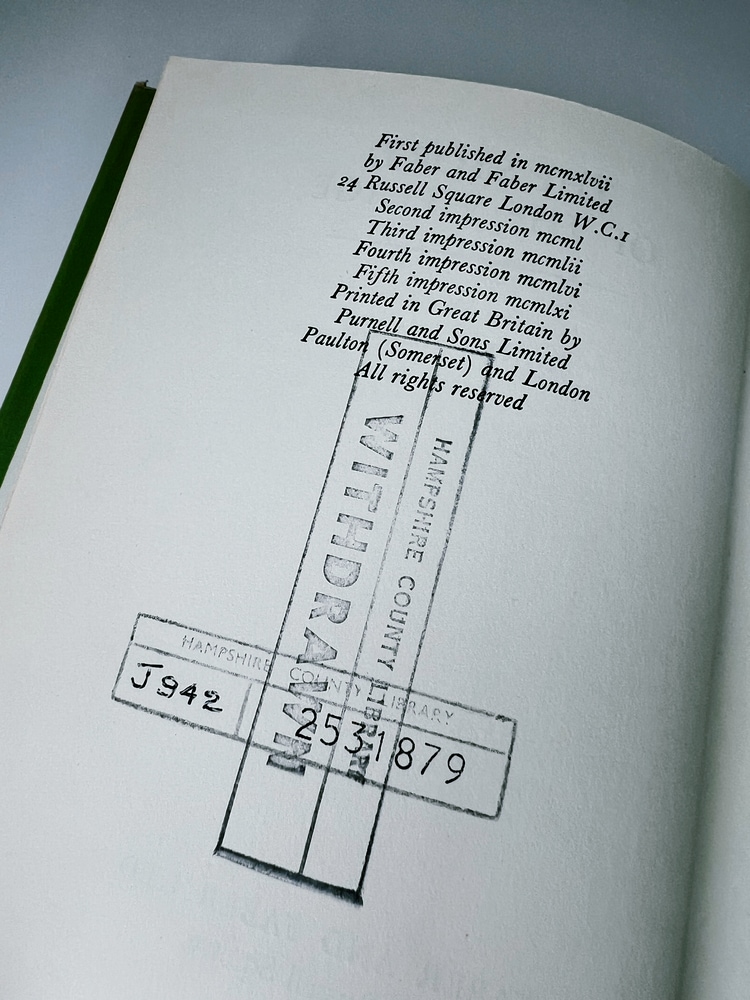 First published in mcmxlvii
by Faber and Faber Limited
24 Russell Square London W.C.1
Second impression mcml
Third impression mcmlii
Fourth impression mcmlvi
Fifth impression mcmlxi
Printed in Great Britain by
Purnell and Sons Limited
Paulton (Somerset) and London
All rights reserved
HAMPSHIRE COUNTY LIBRARY
WITHDRAWN
HAMPSHIRE COUNTY LIBRARY
J942 2531879